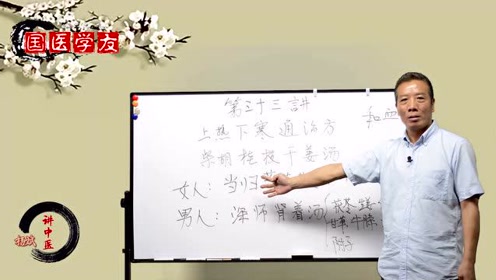 国医学友
第三十三講
上热下寒通治方
和血
柴胡桂枝干姜汤
女人：当归
男人：深师肾着汤
甘草 牛膝
附子
讲中医